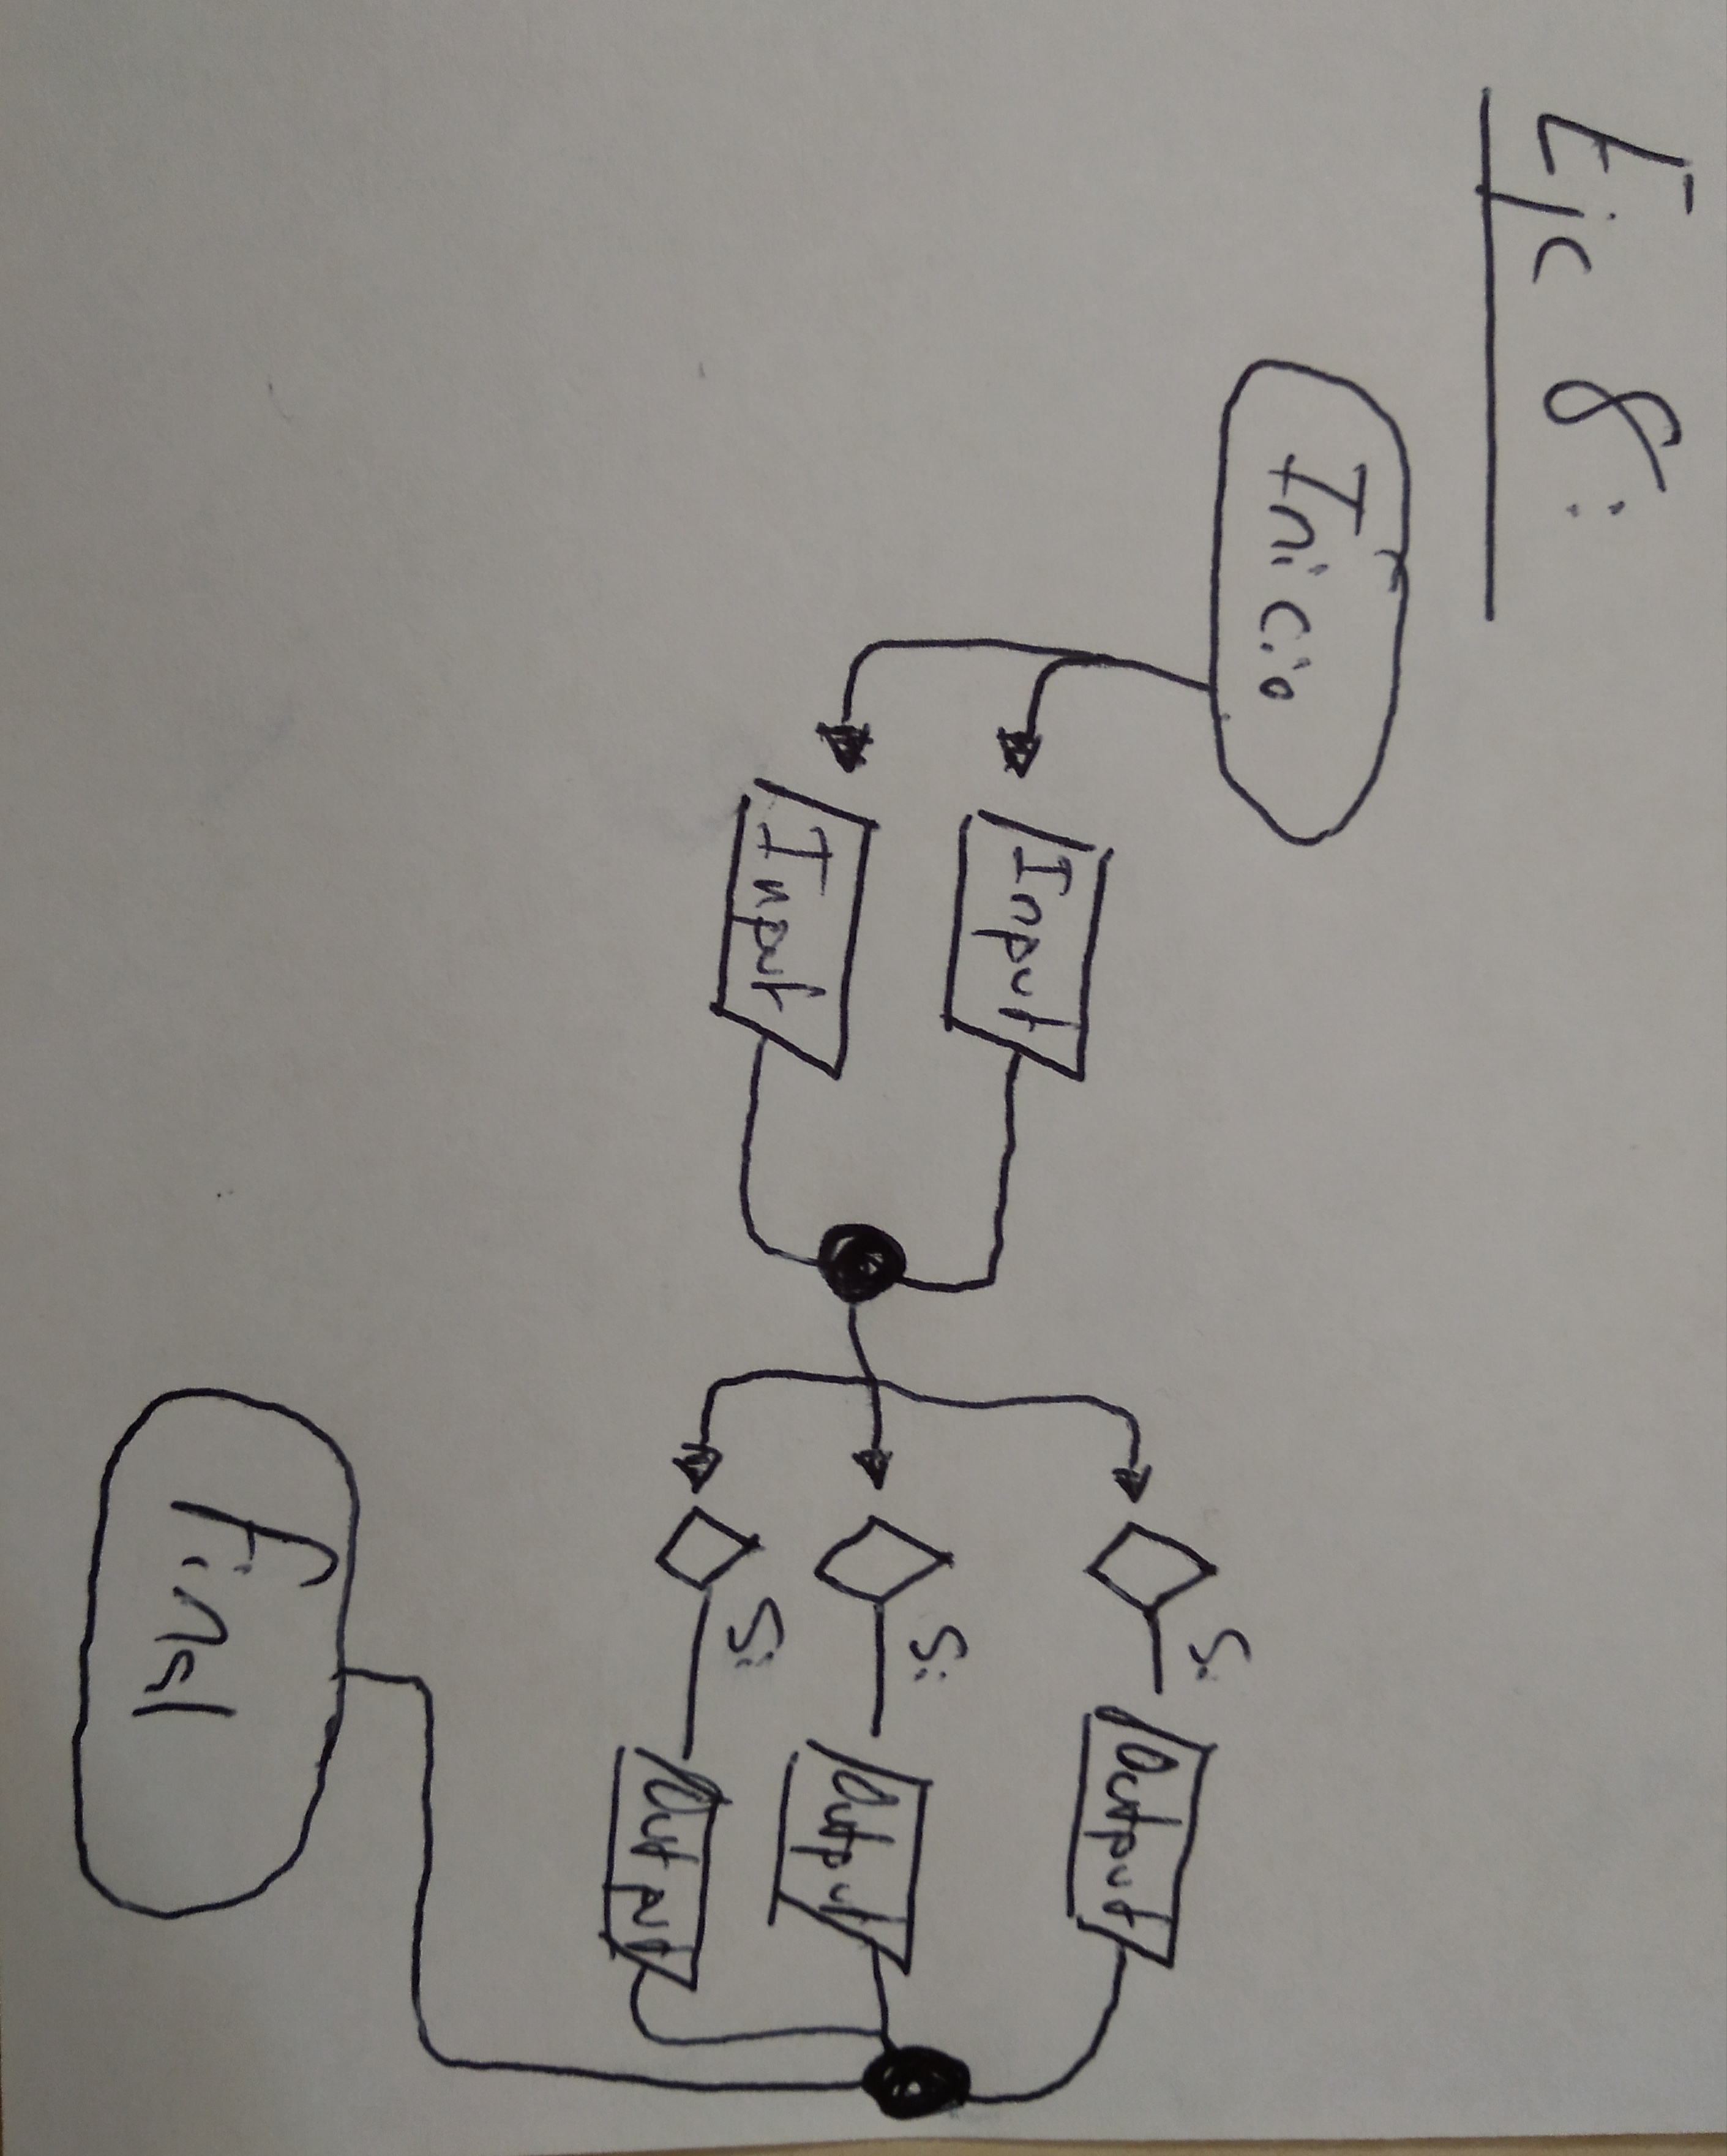 Ejc 8:
Inicio
Input
Input
Si
Si
Si
Output
Output
Output
final